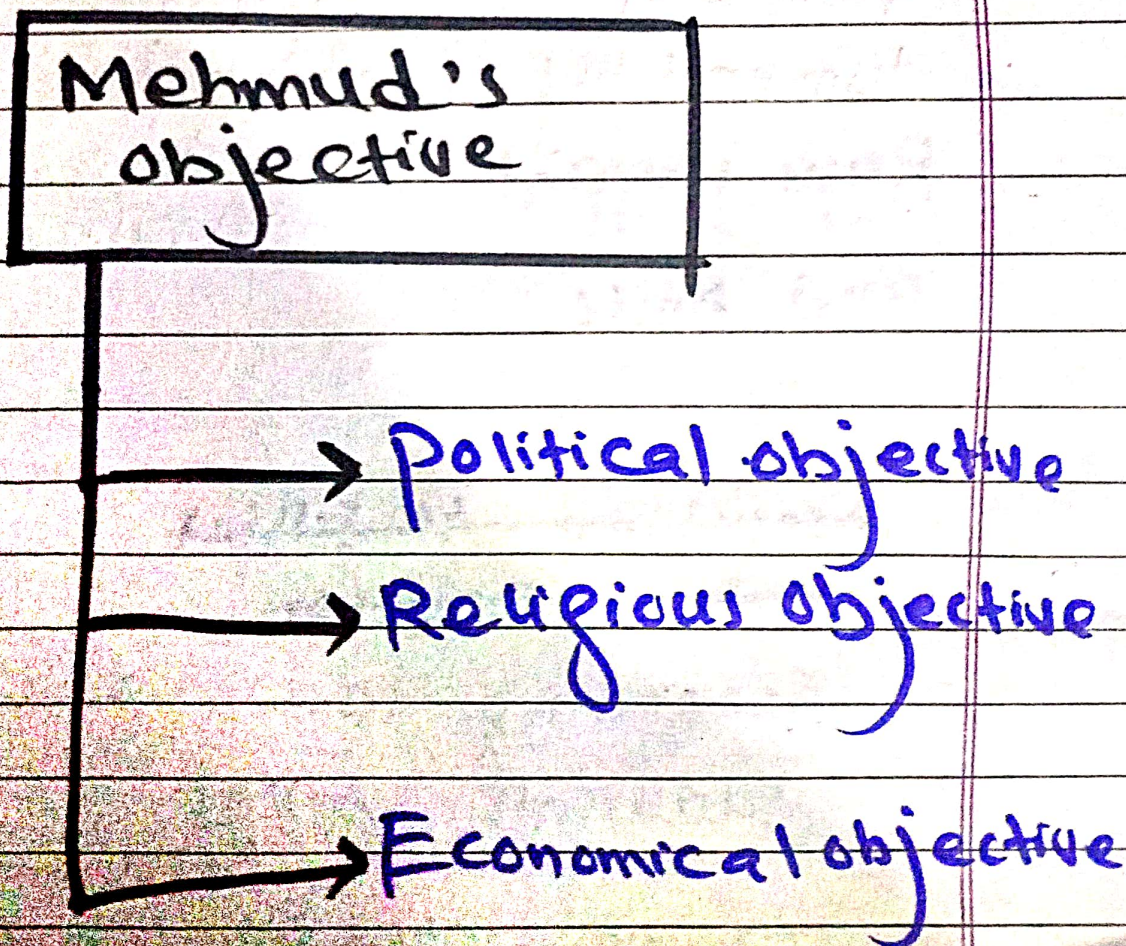 Mehmud's
objective
political objective
Religious objective
Economical objective